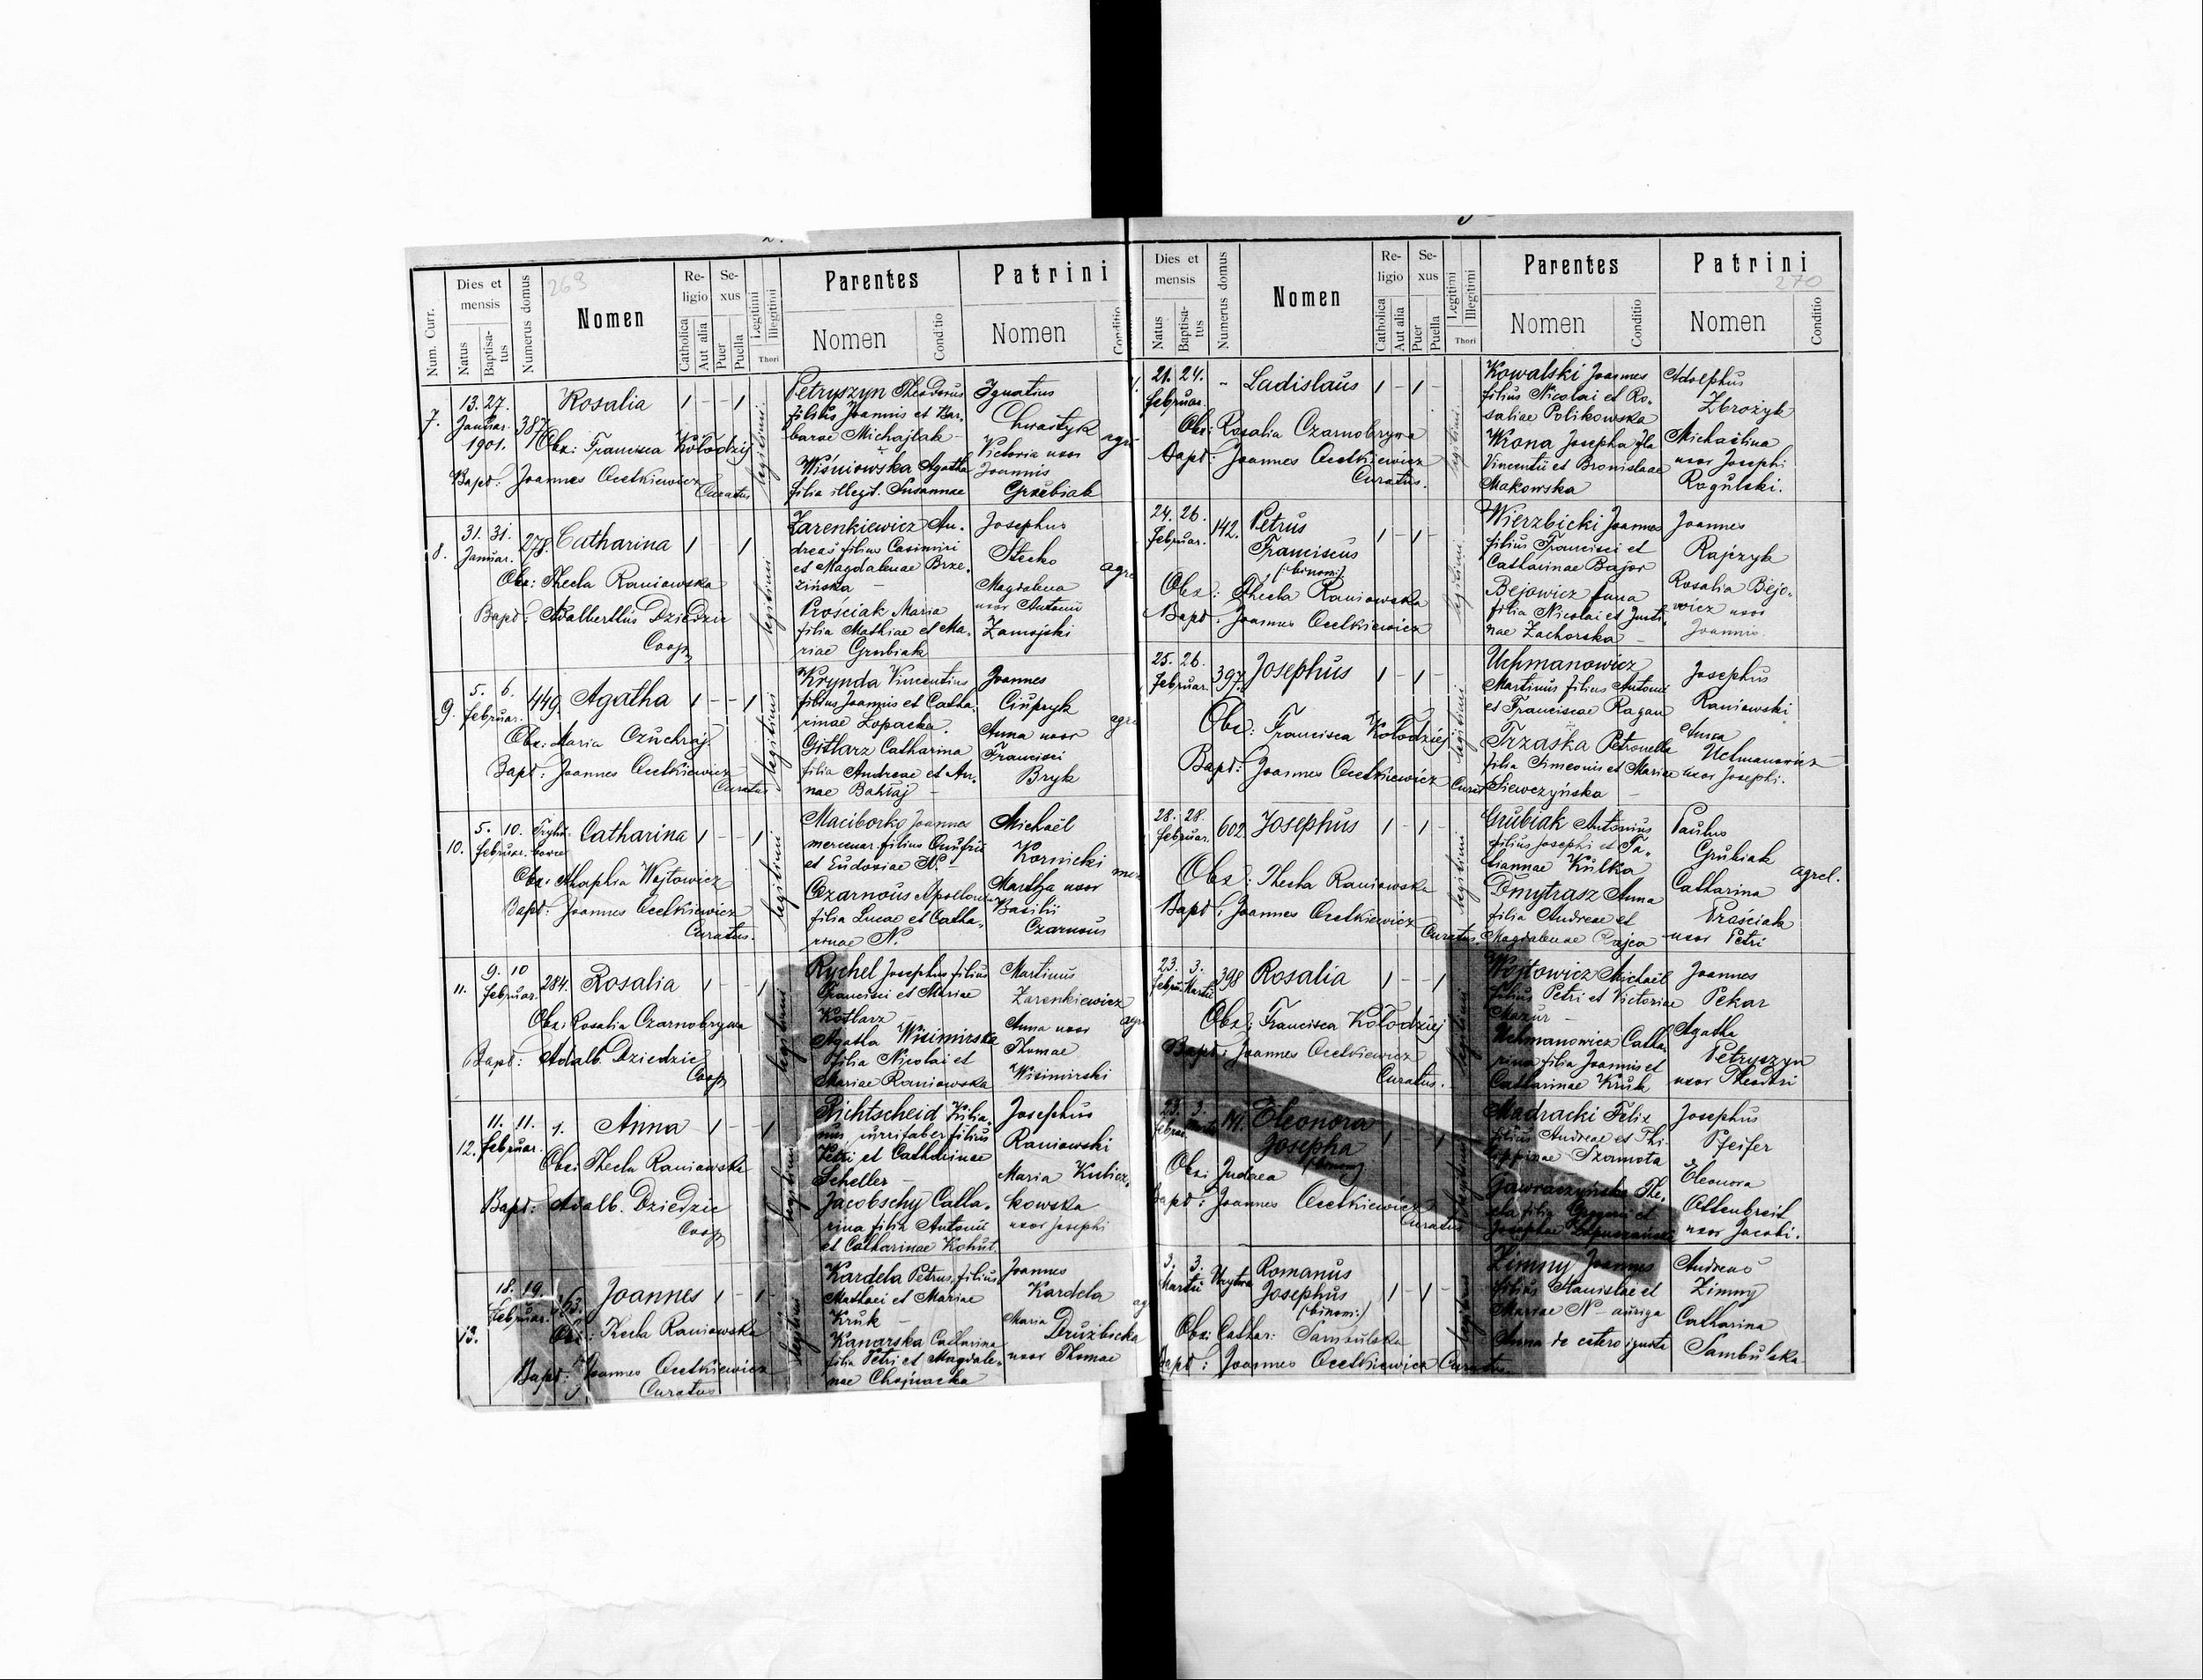 269
Num. Curr.
Dies et mensis
Natus
Baptisatus
Numerus domus
Nomen
Religio
Catholica
Aut alia
Sexus
Puer
Puella
Legitimi
Illegitimi
Thori
Parentes
Nomen
Conditio
Patrini
Nomen
Conditio
7.
13. 27.
Januar.
1901.
387
Rosalia
1 - - 1
legitimi
Obs: Francisca Kołodzij
Bapt: Joannes Ocetkiewicz
Curatus
Petryszyn Theodorus
filius Joannis et Bar-
barae Michajlak -
Wiśniowska Agatha
filia illegit. Susannae
Ignatius
Chwastyk
Victoria uxor
Joannis
Grzebiak
agri
8.
31. 31.
Januar.
278.
Catharina
1 - - 1
legitimi
Obs: Thecla Raniowska
Bapt: Adalbertus Dziedzic
Coop
Zarenkiewicz An-
dreas filius Casimiri
et Magdalenae Brze-
zińska -
Prościak Maria
filia Mathiae et Ma-
riae Grubiak
Josephus
Stecko
Magdalena
uxor Antonii
Zamojski
agri
9.
5. 6.
Februar.
449.
Agatha
1 - - 1
legitimi
Obs: Maria Czuchraj
Bapt: Joannes Ocetkiewicz
Curatus
Krynda Vincentius
filius Joannis et Catha-
rinae Łopacka.
Gitlarz Catharina
filia Andreae et An-
nae Bahraj -
Joannes
Ciupryk
Anna uxor
Francisci
Bryk
agri
10.
5. 10.
Februar.
Catharina
1 - - 1
legitimi
Obs: Wojtowicz
Bapt: Joannes Ocetkiewicz
Curatus.
Maciborko Joannes
mercenar. filius Onufrii
et Eudoxiae N.
Czarnous Apollonia
filia Lucae et Catha-
rinae N.
Michaël
Kornicki
Martha uxor
Basilii
Czarnous
11.
9. 10
Februar.
284.
Rosalia
1 - - 1
legitimi
Obs: Rosalia Czarnobrywa
Bapt: Adalb. Dziedzic
Coop
Rychel Josephus filius
Francisci et Mariae
Kotlarz -
Agatha Wisimirska
filia Nicolai et
Mariae Raniowska
Martinus
Zarenkiewicz
Anna uxor
Thomae
Wisimirski
12.
11. 11.
Februar.
1.
Anna
1 - - 1
legitimi
Obs: Thecla Raniowska
Bapt: Adalb. Dziedzic
Coop
Richtscheid Kilia-
nus, filius
Petri et Catharinae
Scheller -
Jacobschy Catha-
rina filia Antonii
et Catharinae Kohut.
Josephus
Raniowski
Maria Kulicz-
kowska
uxor Josephi
13.
18. 19.
Februar.
Joannes
1 - 1 -
legitimi
Obs: Thecla Raniowska
Bapt: Joannes Ocetkiewicz
Curatus
Kardela Petrus, filius
Mathaei et Mariae
Kruk -
Kanarska Catharina
filia Petri et Magdale-
nae Chojnacka
Joannes
Kardela
Maria
Drużbicka
uxor Thomae
270
Dies et mensis
Natus
Baptisatus
Numerus domus
Nomen
Religio
Catholica
Aut alia
Sexus
Puer
Puella
Legitimi
Illegitimi
Thori
Parentes
Nomen
Conditio
Patrini
Nomen
Conditio
21. 24.
Februar.
Ladislaus
1 - 1 -
legitimi
Obs: Rosalia Czarnobrywa
Bapt: Joannes Ocetkiewicz
Curatus.
Kowalski Joannes
filius Nicolai et Ro-
saliae Polikowska
Wrona Josepha fila
Vincentii et Bronislaae
Makowska
Adolphus
Zbrożyk
Michaëlina
uxor Josephi
Rogulski.
24. 26.
Februar.
142.
Petrus
Franciscus
(binom:)
1 - 1 -
legitimi
Obs: Thecla Raniowska
Bapt: Joannes Ocetkiewicz
Wierzbicki Joannes
filius Francisci et
Catharinae Bajor
Bejowicz Anna
filia Nicolai et Justi-
nae Zachorska -
Joannes
Rajczyk
Rosalia Bejo-
wicz uxor
Joannis.
25. 26.
Februar.
397.
Josephus
1 - 1 -
legitimi
Obs: Francisca Kołodziej
Bapt: Joannes Ocetkiewicz Curat
Uchmanowicz
Martinus filius Antonii
et Franciscae Ragan
Trzaska Petronella
filia Simeonis et Mariae
Siewczyńska -
Josephus
Raniowski
Anna
Uchmanowicz
uxor Josephi.
28. 28.
Februar.
602.
Josephus
1 - 1 -
legitimi
Obs: Thecla Raniowska
Bapt: Joannes Ocetkiewicz
Curatus.
Grubiak Antonius
filius Josephi et Ta-
tiannae Kulka
Dmytrasz Anna
filia Andreae et
Magdalenae Rajca
Paulus
Grubiak
Catharina
Prościak
uxor Petri
agrel.
23. 3.
Februar. Martii
398
Rosalia
1 - - 1
legitimi
Obs: Francisca Kołodziej
Bapt: Joannes Ocetkiewicz
Curatus.
Wojtowicz Michaël
filius Petri et Victoriae
Mazur -
Uchmanowicz Catha-
rina filia Joannis et
Catharinae Kruk
Joannes
Pekar
Agatha
Petryszyn
uxor Theodori
23. 3.
Februar. Martii
Eleonora
Josepha
(binom)
1 - - 1
legitimi
Obs: Judaea
Bapt: Joannes Ocetkiewicz
Curatus
Madracki Felix
filius Andreae et Phi-
lippinae Szamota
Jawraczyńska The-
cla filia Gregorii et
Josephae
Josephus
Pfeifer
Eleonora
Ottenbreit
uxor Jacobi.
3. 3.
Martii
Romanus
Josephus
(binomi:)
1 - 1 -
legitimi
Obs: Cathar: Sambulska
Bapt: Joannes Ocetkiewicz Curatus
Zimny Joannes
filius Stanislai et
Mariae N - auriga
Anna de cetero ignota
Andreas
Zimny
Catharina
Sambulska